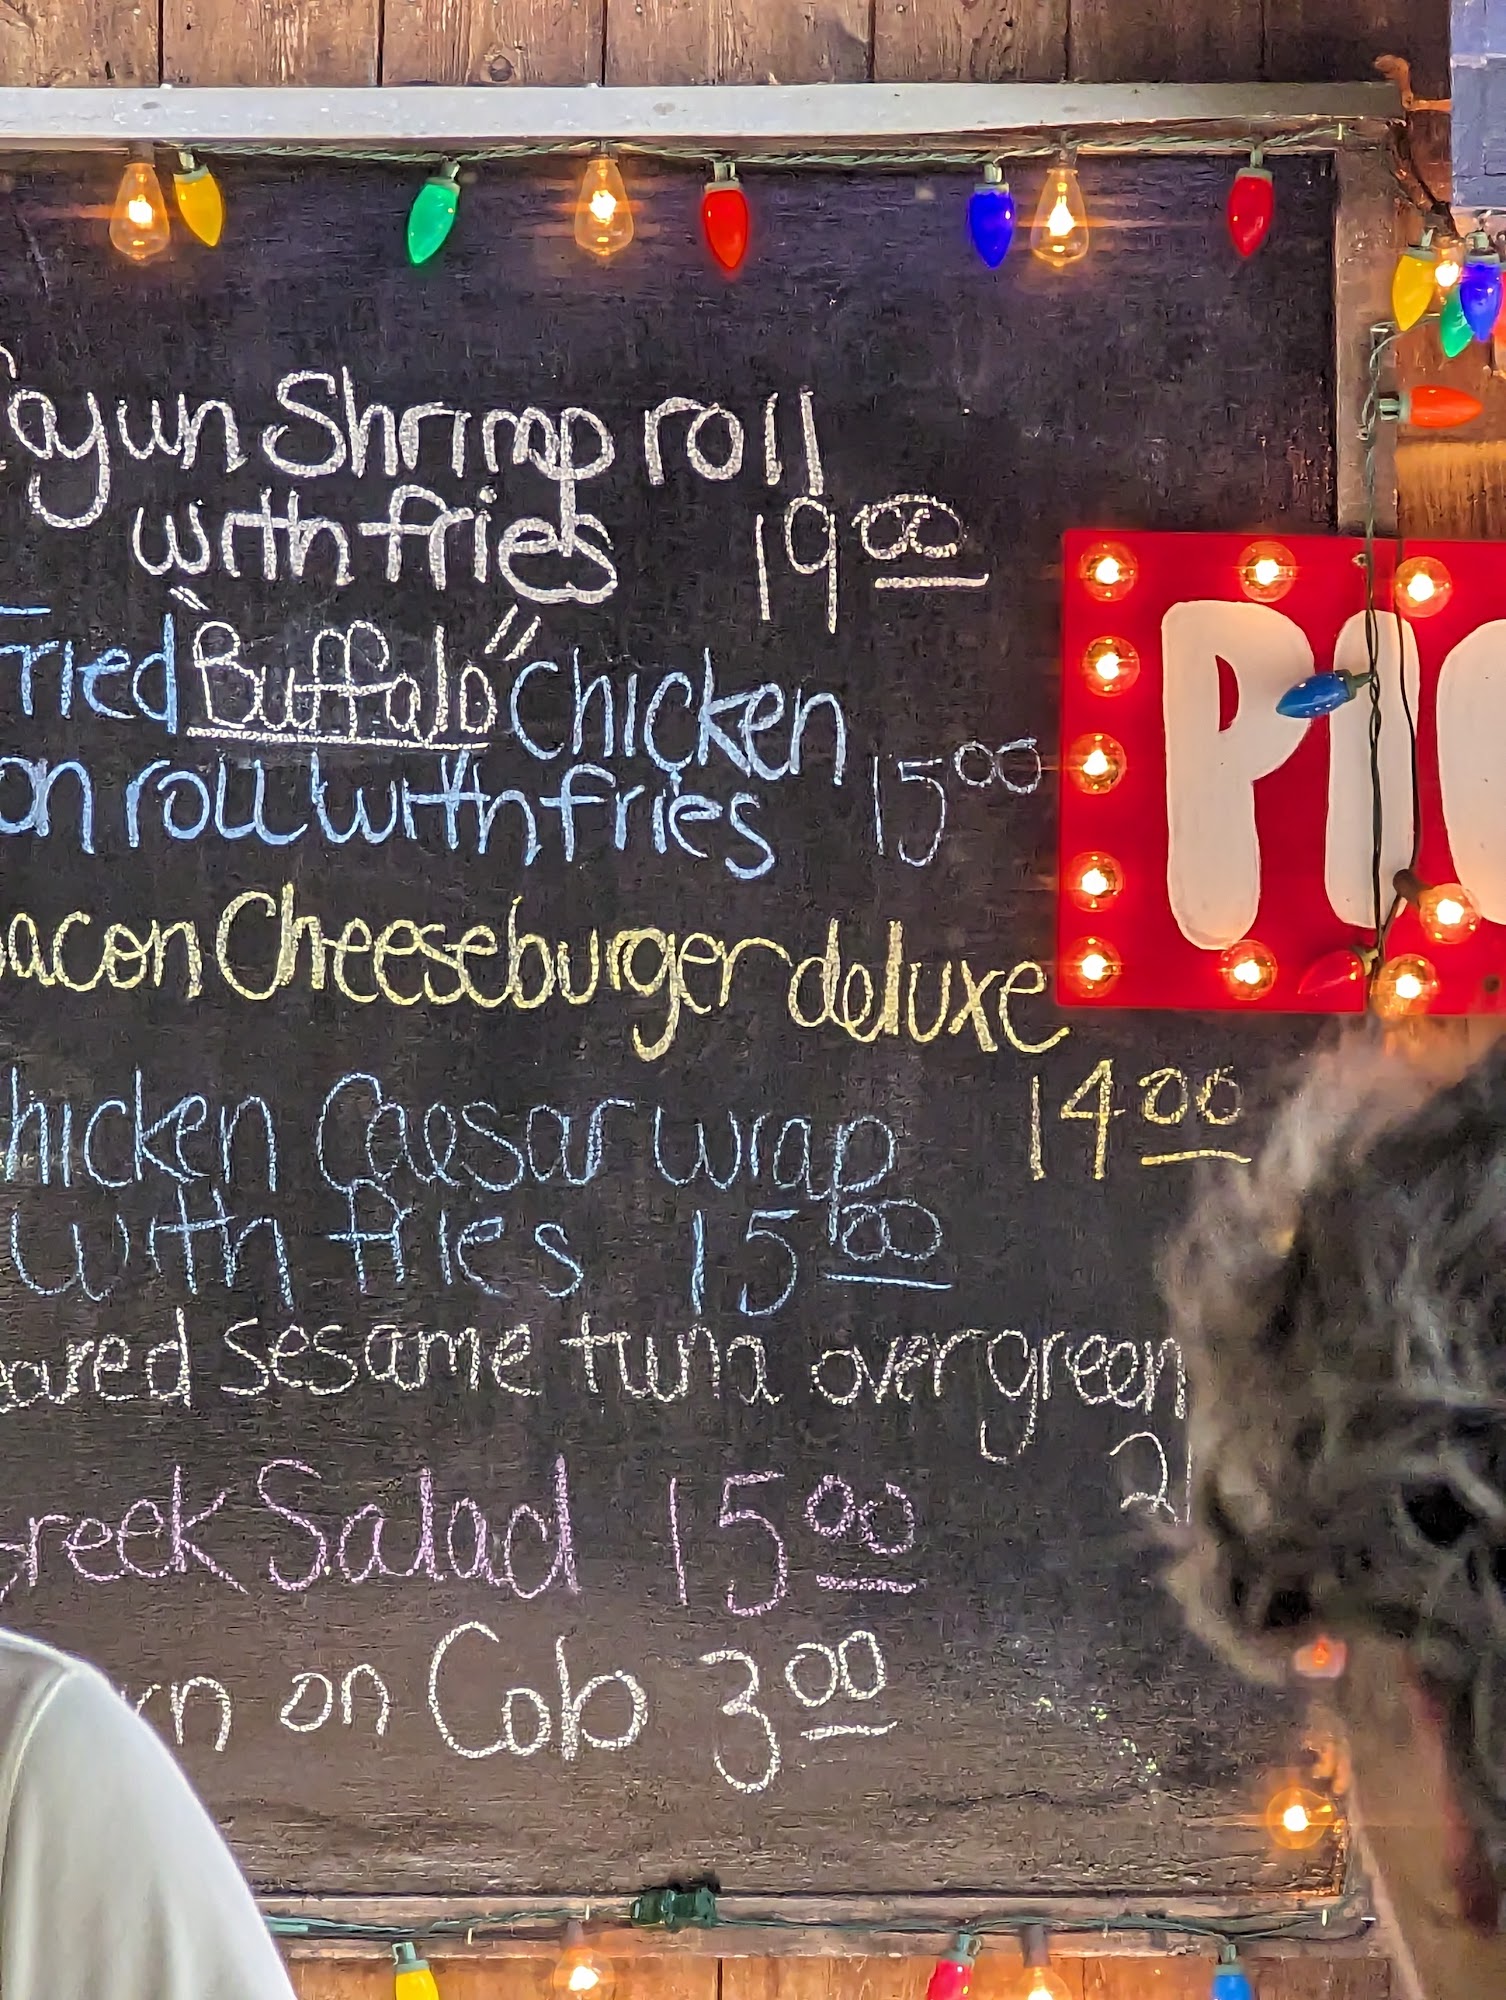 Cajun Shrimp roll
with fries 19.00
Fried "Buffalo" Chicken
on roll with fries 15.00
acon Cheeseburger deluxe
14.00
hicken Caesar wrap
with fries 15.00
eared sesame tuna over green
2
Greek Salad 15.00
rn on Cob 3.00
PIC